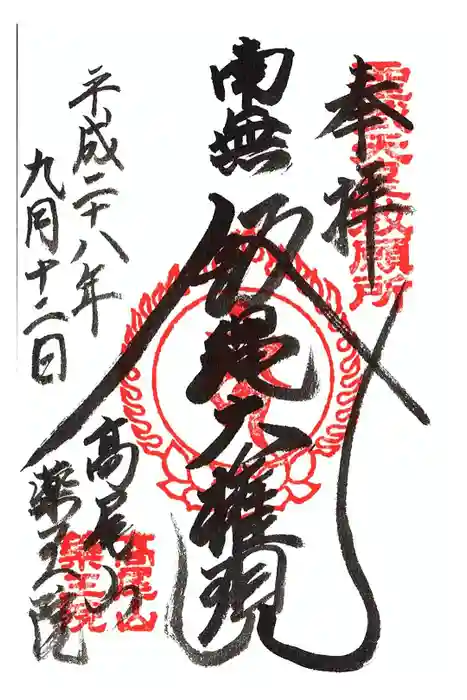 奉拝
南無
飯縄大権現
平成二十八年
九月十二日
高尾山
薬王院
高尾山
薬王院